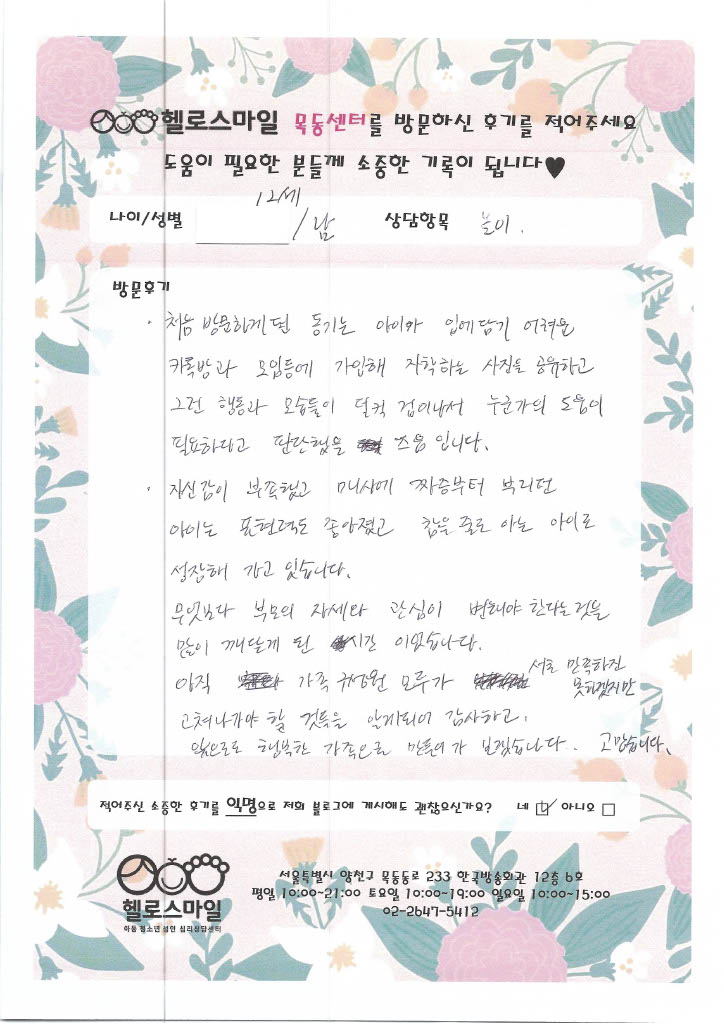 헬로스마일 목동센터를 방문하신 후기를 적어주세요
도움이 필요한 분들께 소중한 기록이 됩니다♥
나이/성별 12세 / 남 상담항목 놀이.
방문후기
· 처음 방문하게된 동기는 아이가 입에담기 어려운
카톡방과 모임등에 가입해 자학하는 사진을 공유하고
그런 행동과 모습들이 덜컥 겁이나서 누군가의 도움이
필요하다고 판단했을 쯔음 입니다.
· 자신감이 부족했고 매사에 짜증부터 부리던
아이는 표현력도 좋아졌고 참을 줄도 아는 아이로
성장해 가고 있습니다.
무엇보다 부모의 자세와 관심이 변해야 한다는것을
많이 깨달게 된 시간 이었습니다.
아직 가족 구성원 모두가 서로 만족하진 못하겠지만
고쳐나가야 할 것들을 알게되어 감사하고.
앞으로도 행복한 가족으로 만들어가 보겠습니다. 고맙습니다.
적어주신 소중한 후기를 익명으로 저희 블로그에 게시해도 괜찮으신가요? 네 ☑ 아니오 □
헬로스마일
아동 청소년 성인 심리상담센터
서울특별시 양천구 목동동로 233 한국방송회관 12층 6호
평일 10:00~21:00 토요일 10:00~19:00 일요일 10:00~15:00
02-2647-5412